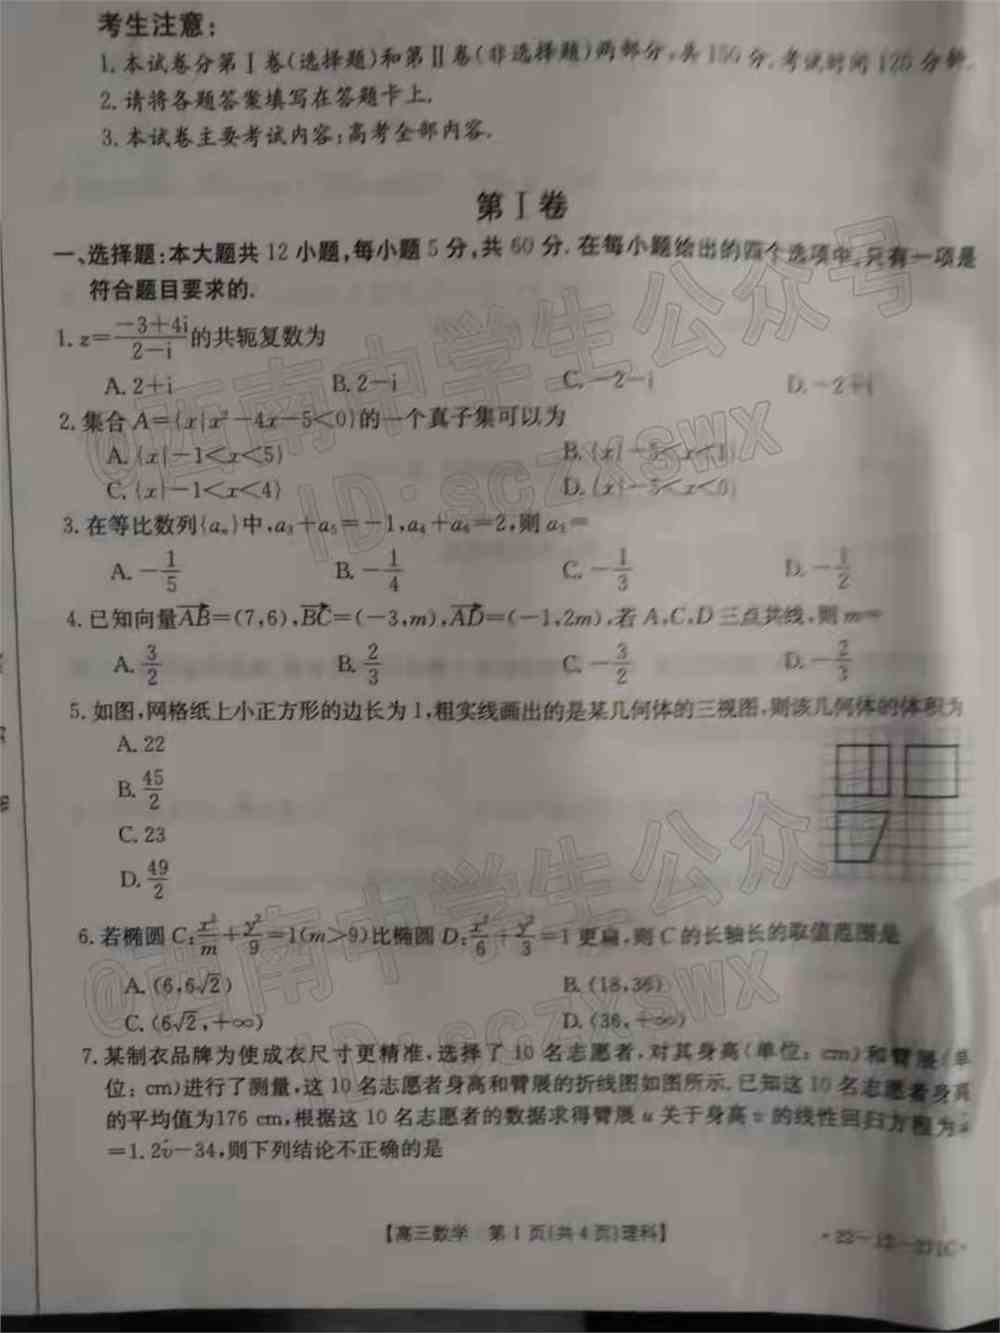 考生注意:
1.本试卷分第Ⅰ卷(选择题)和第Ⅱ卷(非选择题)两部分,共150分.考试时间120分钟.
2.请将各题答案填写在答题卡上.
3.本试卷主要考试内容:高考全部内容.
第Ⅰ卷
一、选择题:本大题共12小题,每小题5分,共60分.在每小题给出的四个选项中,只有一项是
符合题目要求的.
1. z=\frac{-3+4i}{2-i}的共轭复数为
A.2+i B.2-i C.-2-i D.-2+i
2.集合A={x|x²-4x-5<0}的一个真子集可以为
A.{x|-1<x<5} B.{x|-5<x<1}
C.{x|-1<x<4} D.{x|-5<x<0}
3.在等比数列{aₙ}中,a₃+a₅=-1,a₄+a₆=2,则a₃=
A.-\frac{1}{5} B.-\frac{1}{4} C.-\frac{1}{3} D.-\frac{1}{2}
4.已知向量\overrightarrow{AB}=(7,6),\overrightarrow{BC}=(-3,m),\overrightarrow{AD}=(-1,2m),若A,C,D三点共线,则m=
A.\frac{3}{2} B.\frac{2}{3} C.-\frac{3}{2} D.-\frac{2}{3}
5.如图,网格纸上小正方形的边长为1,粗实线画出的是某几何体的三视图,则该几何体的体积为
A.22
B.\frac{45}{2}
C.23
D.\frac{49}{2}
6.若椭圆C:\frac{x²}{m}+\frac{y²}{9}=1(m>9)比椭圆D:\frac{x²}{6}+\frac{y²}{3}=1更扁,则C的长轴长的取值范围是
A.(6,6√2) B.(18,36)
C.(6√2,+∞) D.(36,+∞)
7.某制衣品牌为使成衣尺寸更精准,选择了10名志愿者,对其身高(单位:cm)和臂展(单
位:cm)进行了测量,这10名志愿者身高和臂展的折线图如图所示.已知这10名志愿者身高
的平均值为176 cm,根据这10名志愿者的数据求得臂展u关于身高v的线性回归方程为û
=1.2v̂-34,则下列结论不正确的是
【高三数学 第1页(共4页)理科】
南中学生公众号
ID:SCZXSWX
南中学生公众
ID:SCZXSWX